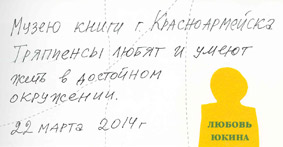 Музею книги г. Красноармейска
Тряпиенсы любят и умеют
жить в достойном
окружении.
22 марта 2014г
ЛЮБОВЬ
ЮКИНА